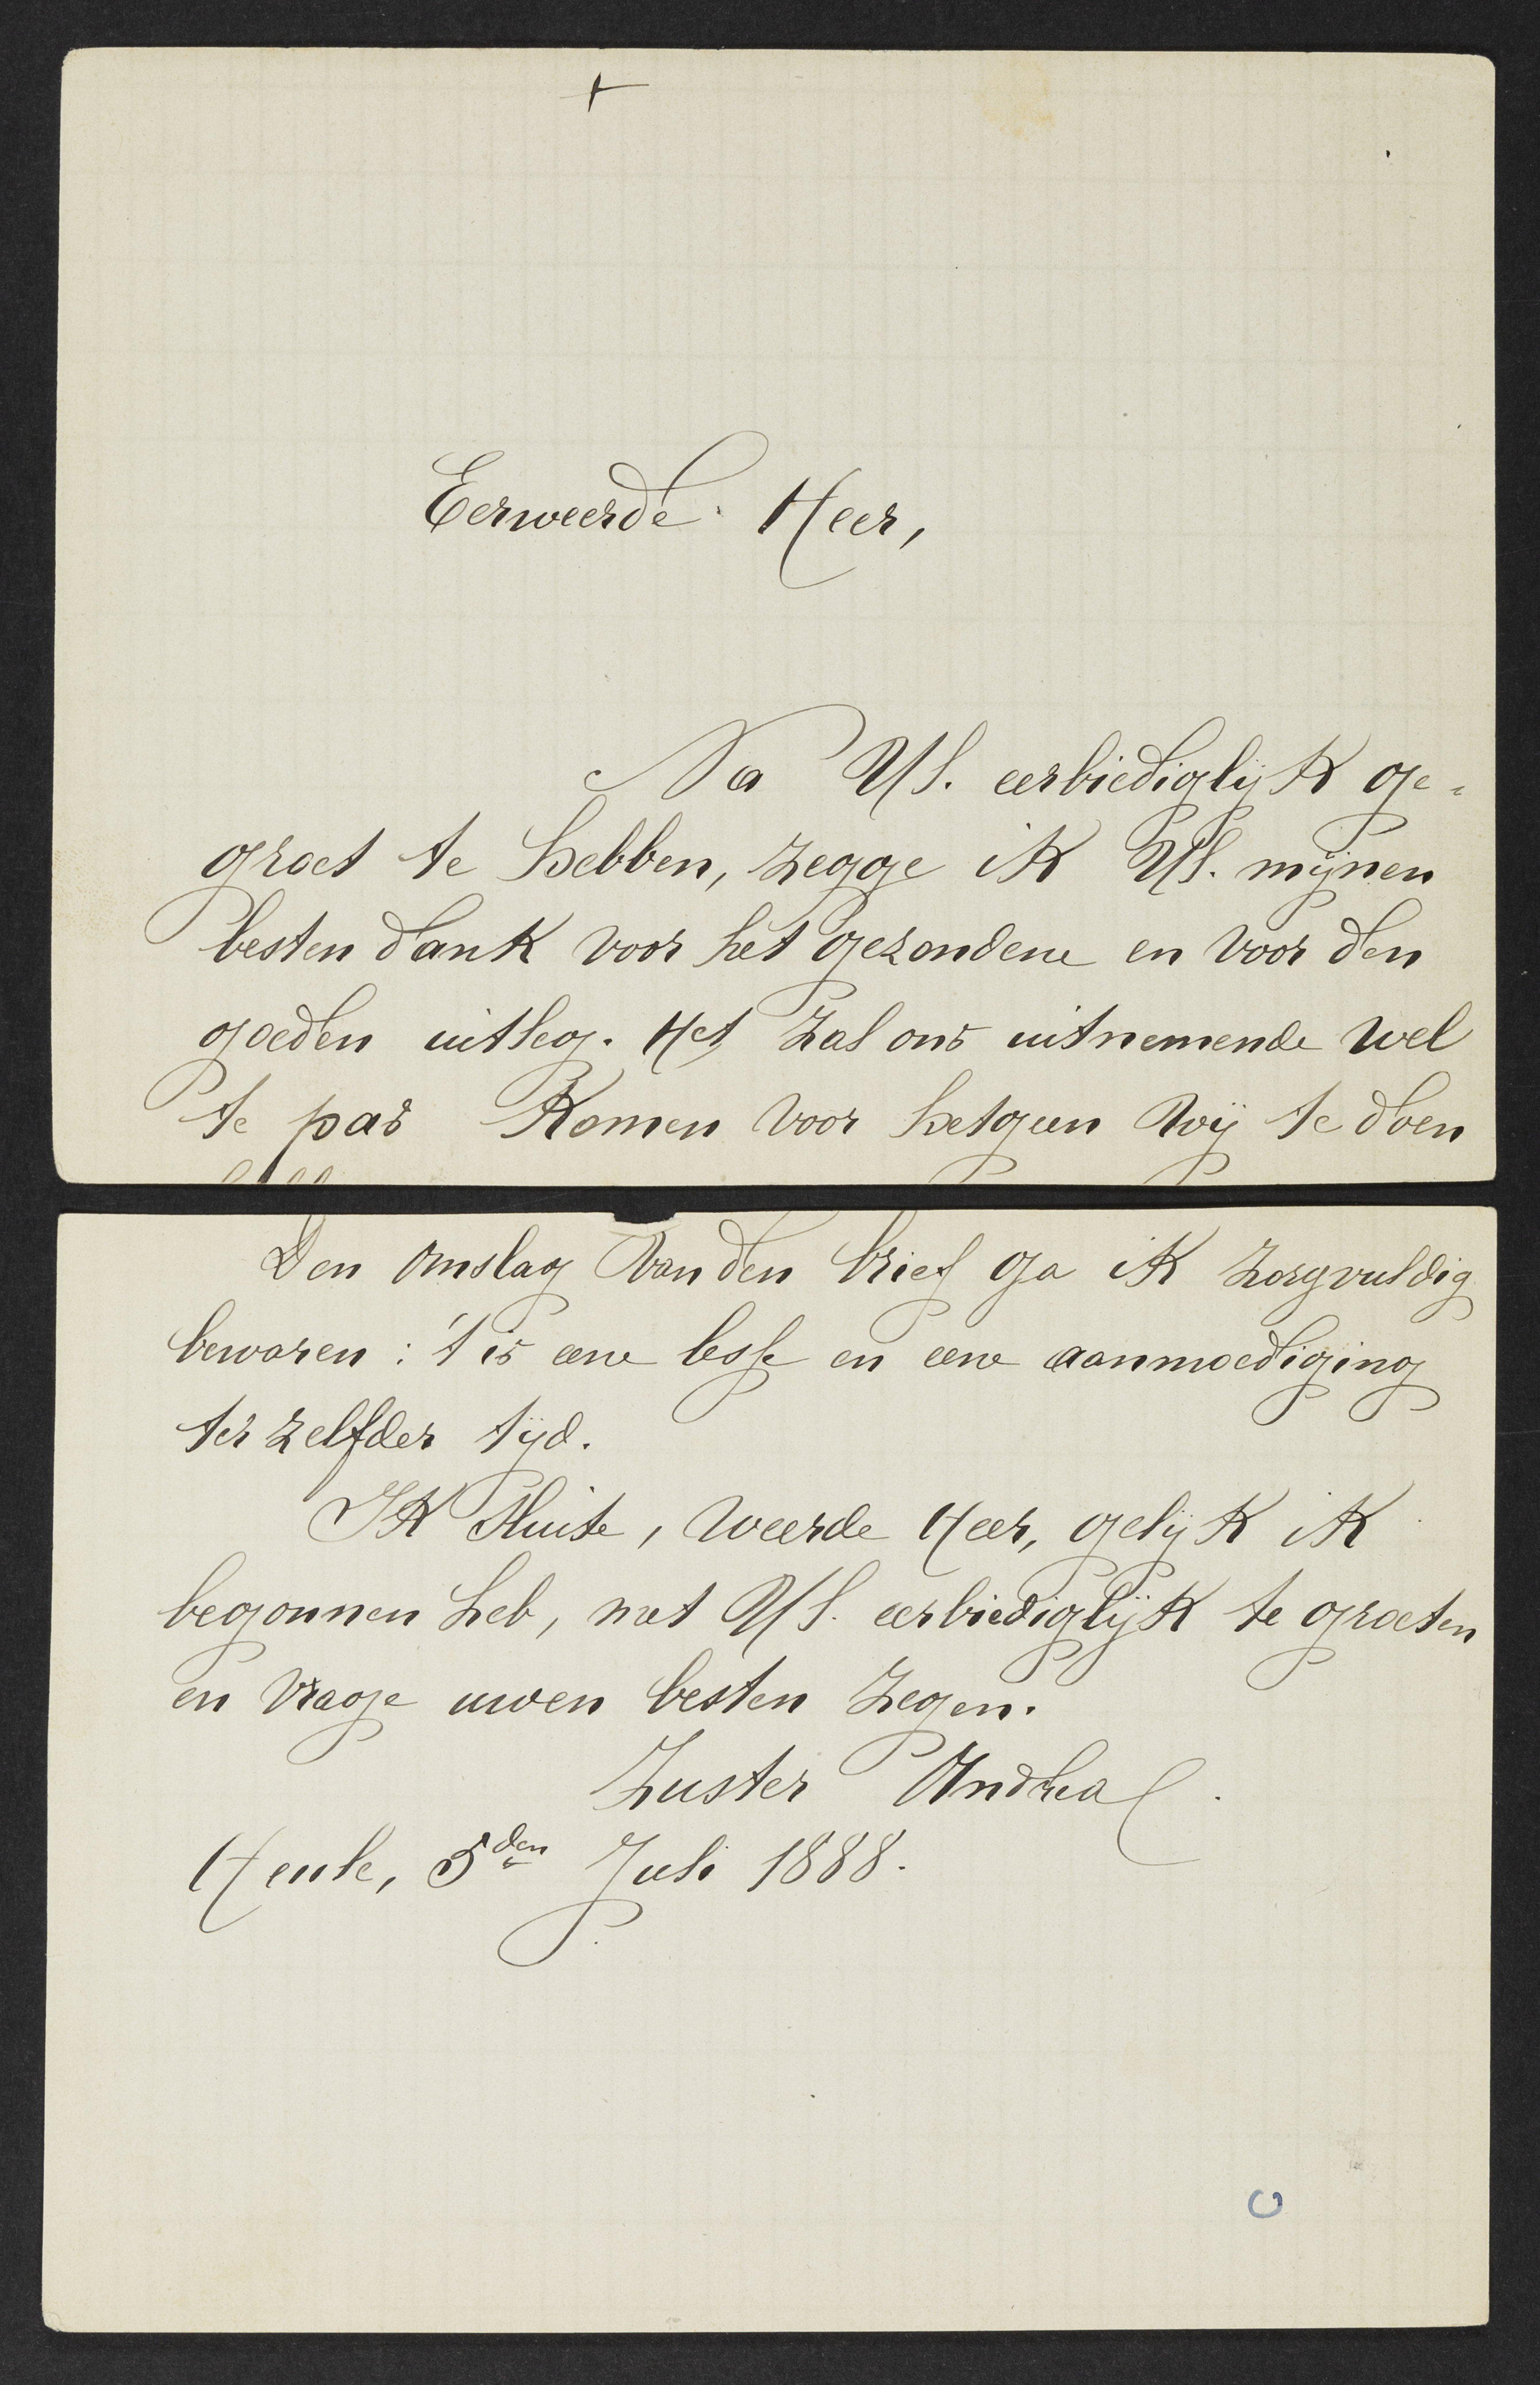 +
Eerweerde Heer,
Na Ul. eerbiediglijk ge-
groet te hebben, zegge ik Ul. mijnen
besten dank voor het gezondene en voor den
goeden uitleg. Het zal ons uitnemende wel
te pas komen voor hetgeen wij te doen
Den omslag van den brief ga ik zorgvuldig
bewaren: 't is eene lesse en eene aanmoediging
ter zelfder tijd.
Ik sluite, weerde Heer, gelijk ik
begonnen heb, met Ul. eerbiediglijk te groeten
en vrage uwen besten zegen.
Zuster Andrea
Heule, 5den Juli 1888.